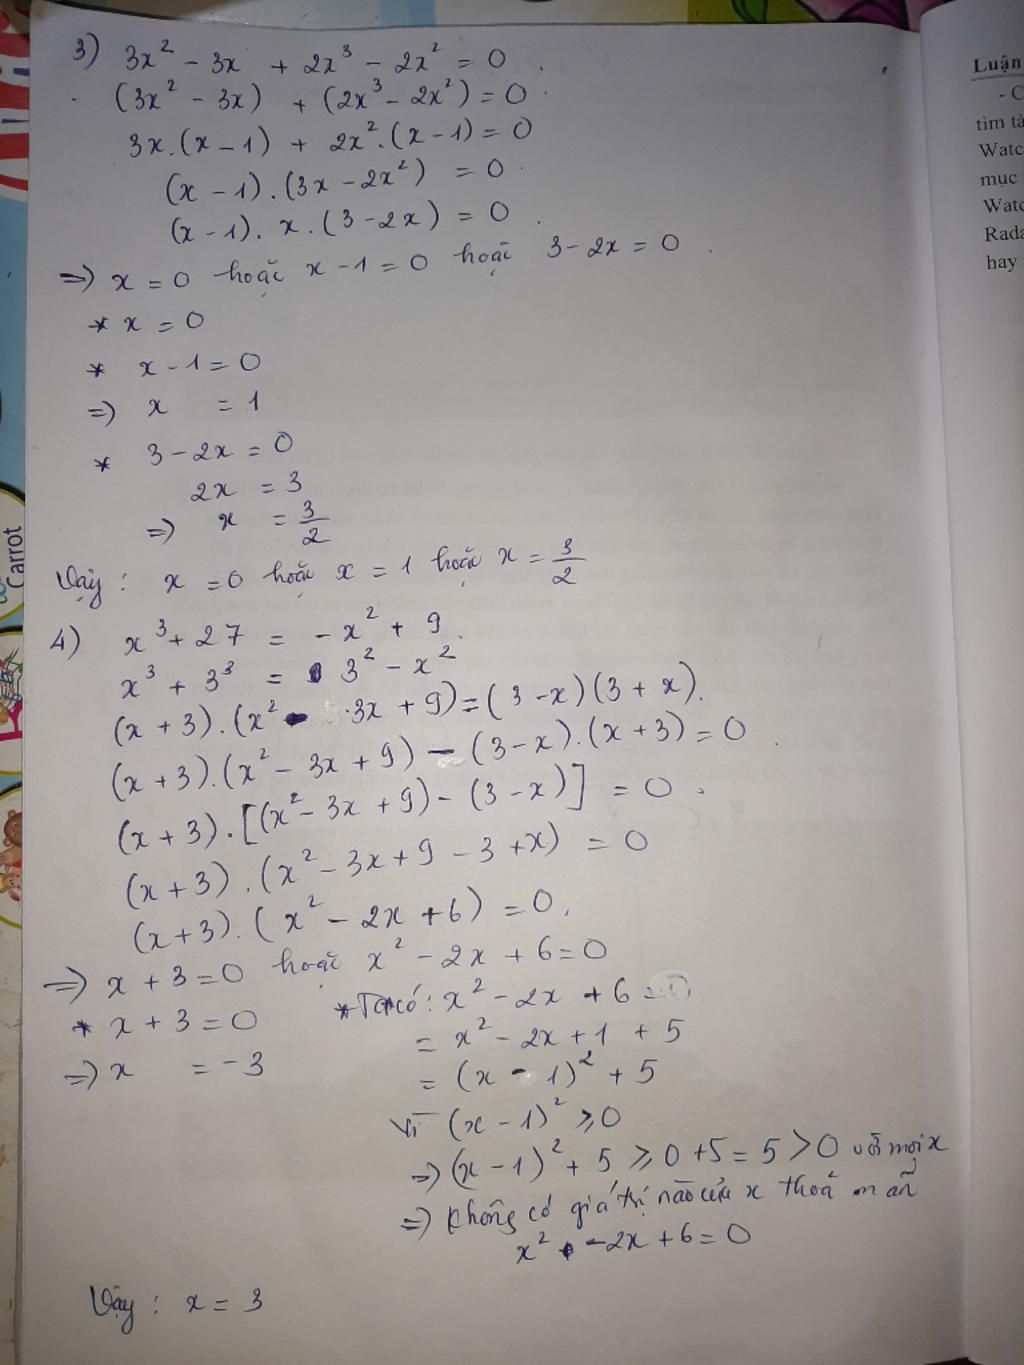 3) 3x² - 3x + 2x³ - 2x² = 0
(3x² - 3x) + (2x³ - 2x²) = 0
3x.(x - 1) + 2x².(x - 1) = 0
(x - 1).(3x - 2x²) = 0
(x - 1). x.(3 - 2x) = 0
=> x = 0 hoặc x - 1 = 0 hoặc 3 - 2x = 0
* x = 0
* x - 1 = 0
=> x = 1
* 3 - 2x = 0
2x = 3
=> x = 3/2
Vậy: x = 0 hoặc x = 1 hoặc x = 3/2
4) x³ + 27 = - x² + 9.
x³ + 3³ = 3² - x²
(x + 3).(x² - 3x + 9) = (3 - x)(3 + x).
(x + 3).(x² - 3x + 9) - (3 - x).(x + 3) = 0
(x + 3).[(x² - 3x + 9) - (3 - x)] = 0
(x + 3).(x² - 3x + 9 - 3 + x) = 0
(x + 3).(x² - 2x + 6) = 0
=> x + 3 = 0 hoặc x² - 2x + 6 = 0
* x + 3 = 0
=> x = -3
* Ta có: x² - 2x + 6 = 0
= x² - 2x + 1 + 5
= (x - 1)² + 5
Vì (x - 1)² ⩾ 0
=> (x - 1)² + 5 ⩾ 0 + 5 = 5 > 0 với mọi x
=> Không có giá trị nào của x thoả mãn
x² - 2x + 6 = 0
Vậy: x = 3
Luận
- C
tìm tà
Watc
mục
Watc
Rada
hay
Carrot